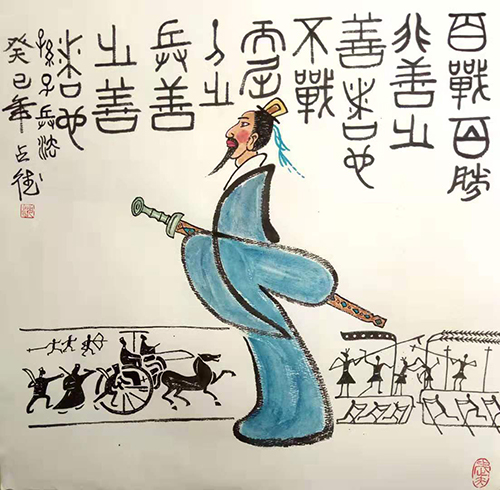 百戰百勝
非善之
善者也
不戰
而屈
人之
兵善
之善
者也
孫子兵法
癸巳年